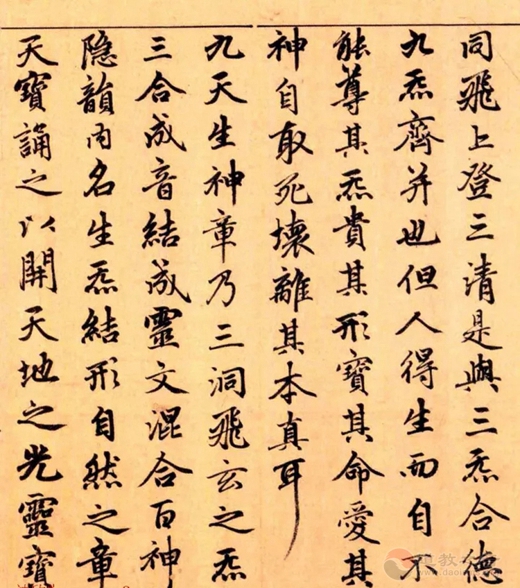 同飛上登三清是與三炁合德
九炁齊并也但人得生而自不
能尊其炁貴其形寶其命愛其
神自取死壞離其本真耳
九天生神章乃三洞飛玄之炁
三合成音結成靈文混合百神
隱韻內名生炁結形自然之章
天寶誦之以開天地之光靈寶